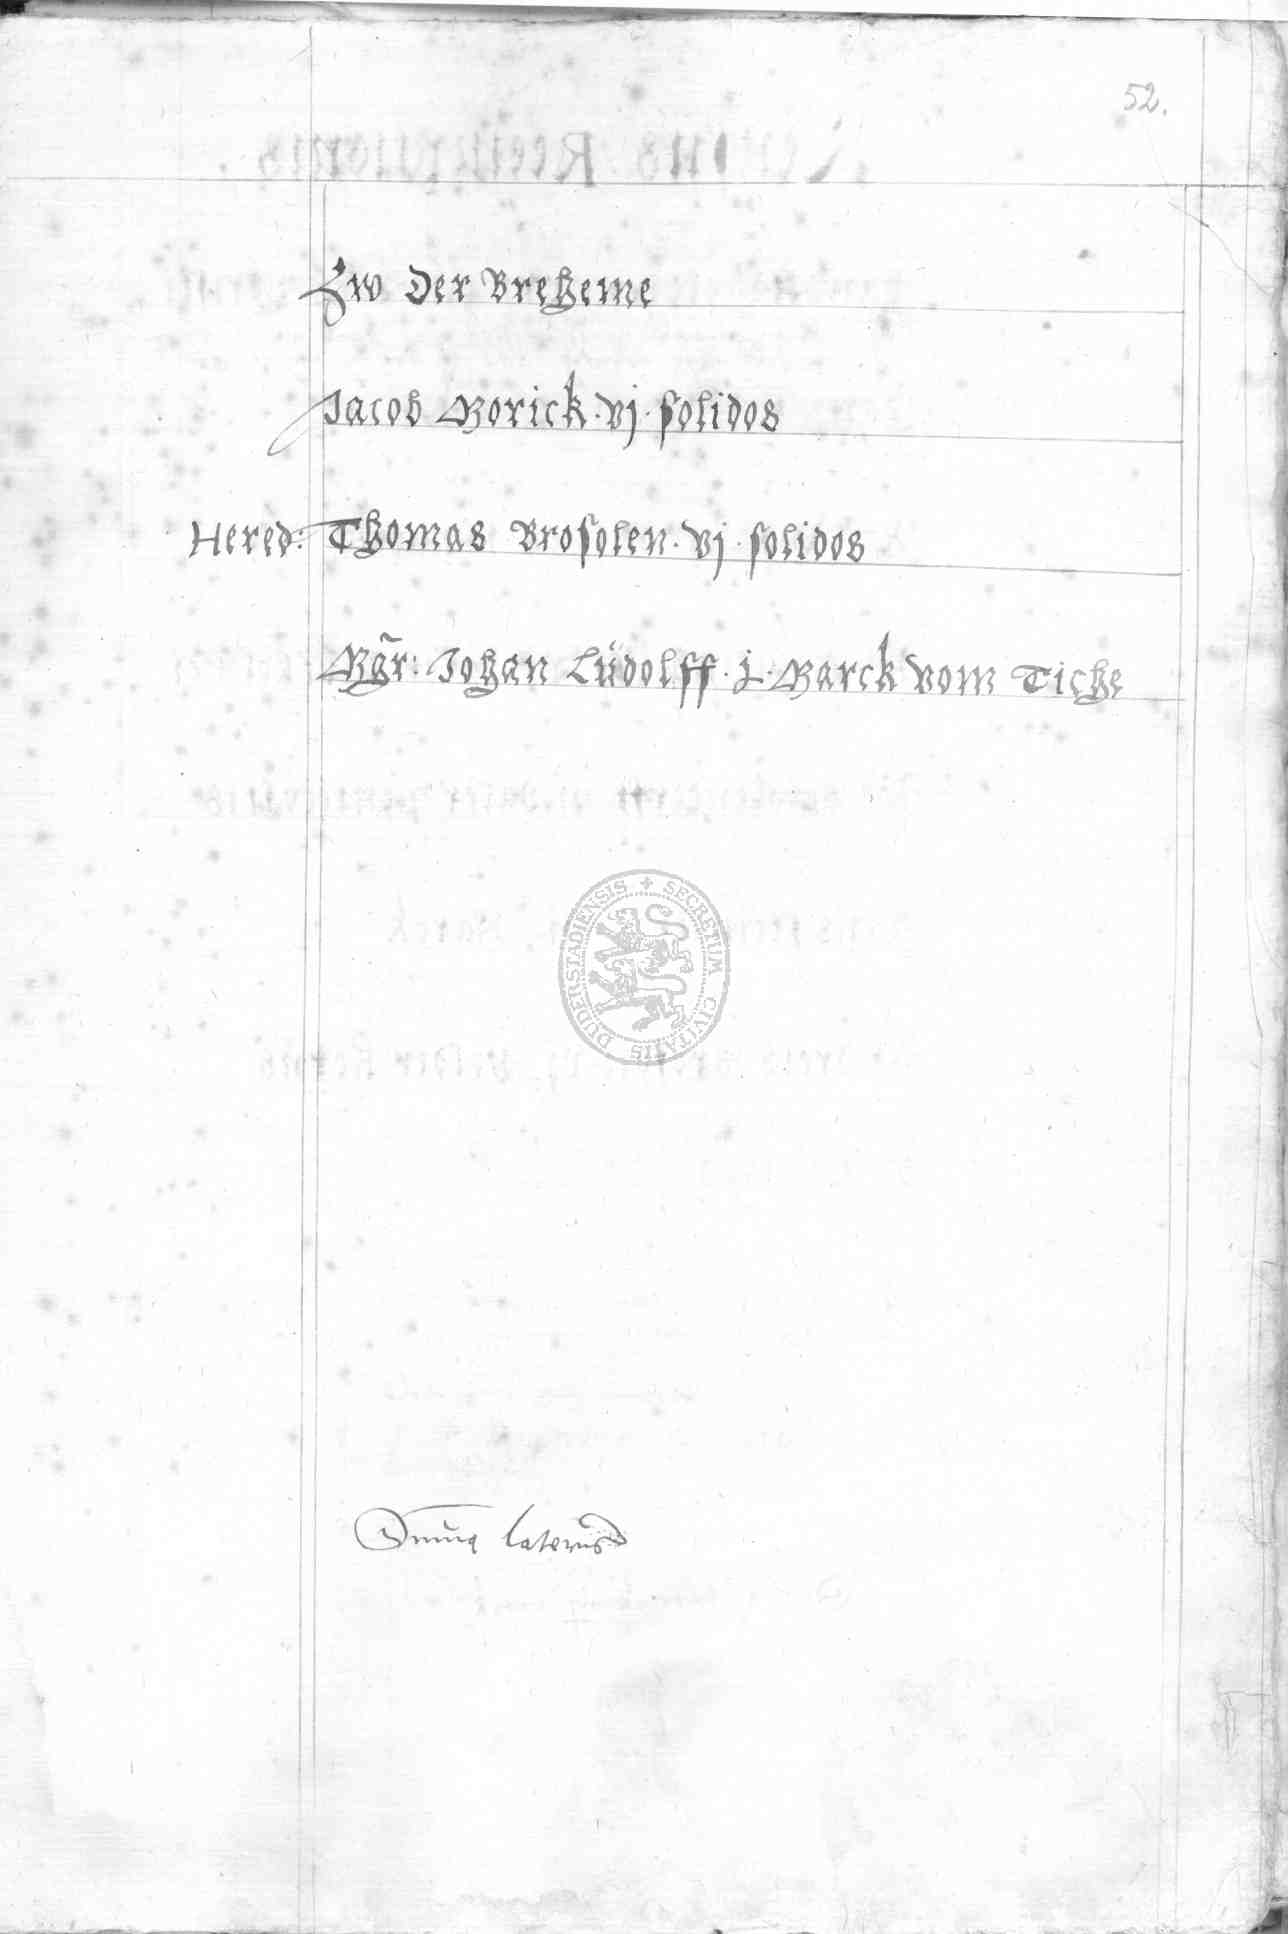 52.
Zw Der Breheme
Jacob Morick · vj · solidos
Hered: Thomas Brosolen · vj · solidos
Mgr̃: Johan Lüdolff · j · Marck vom Tiche
DUDERSTADIENSIS + SECRETUM CIVITATIS
Suma lateris